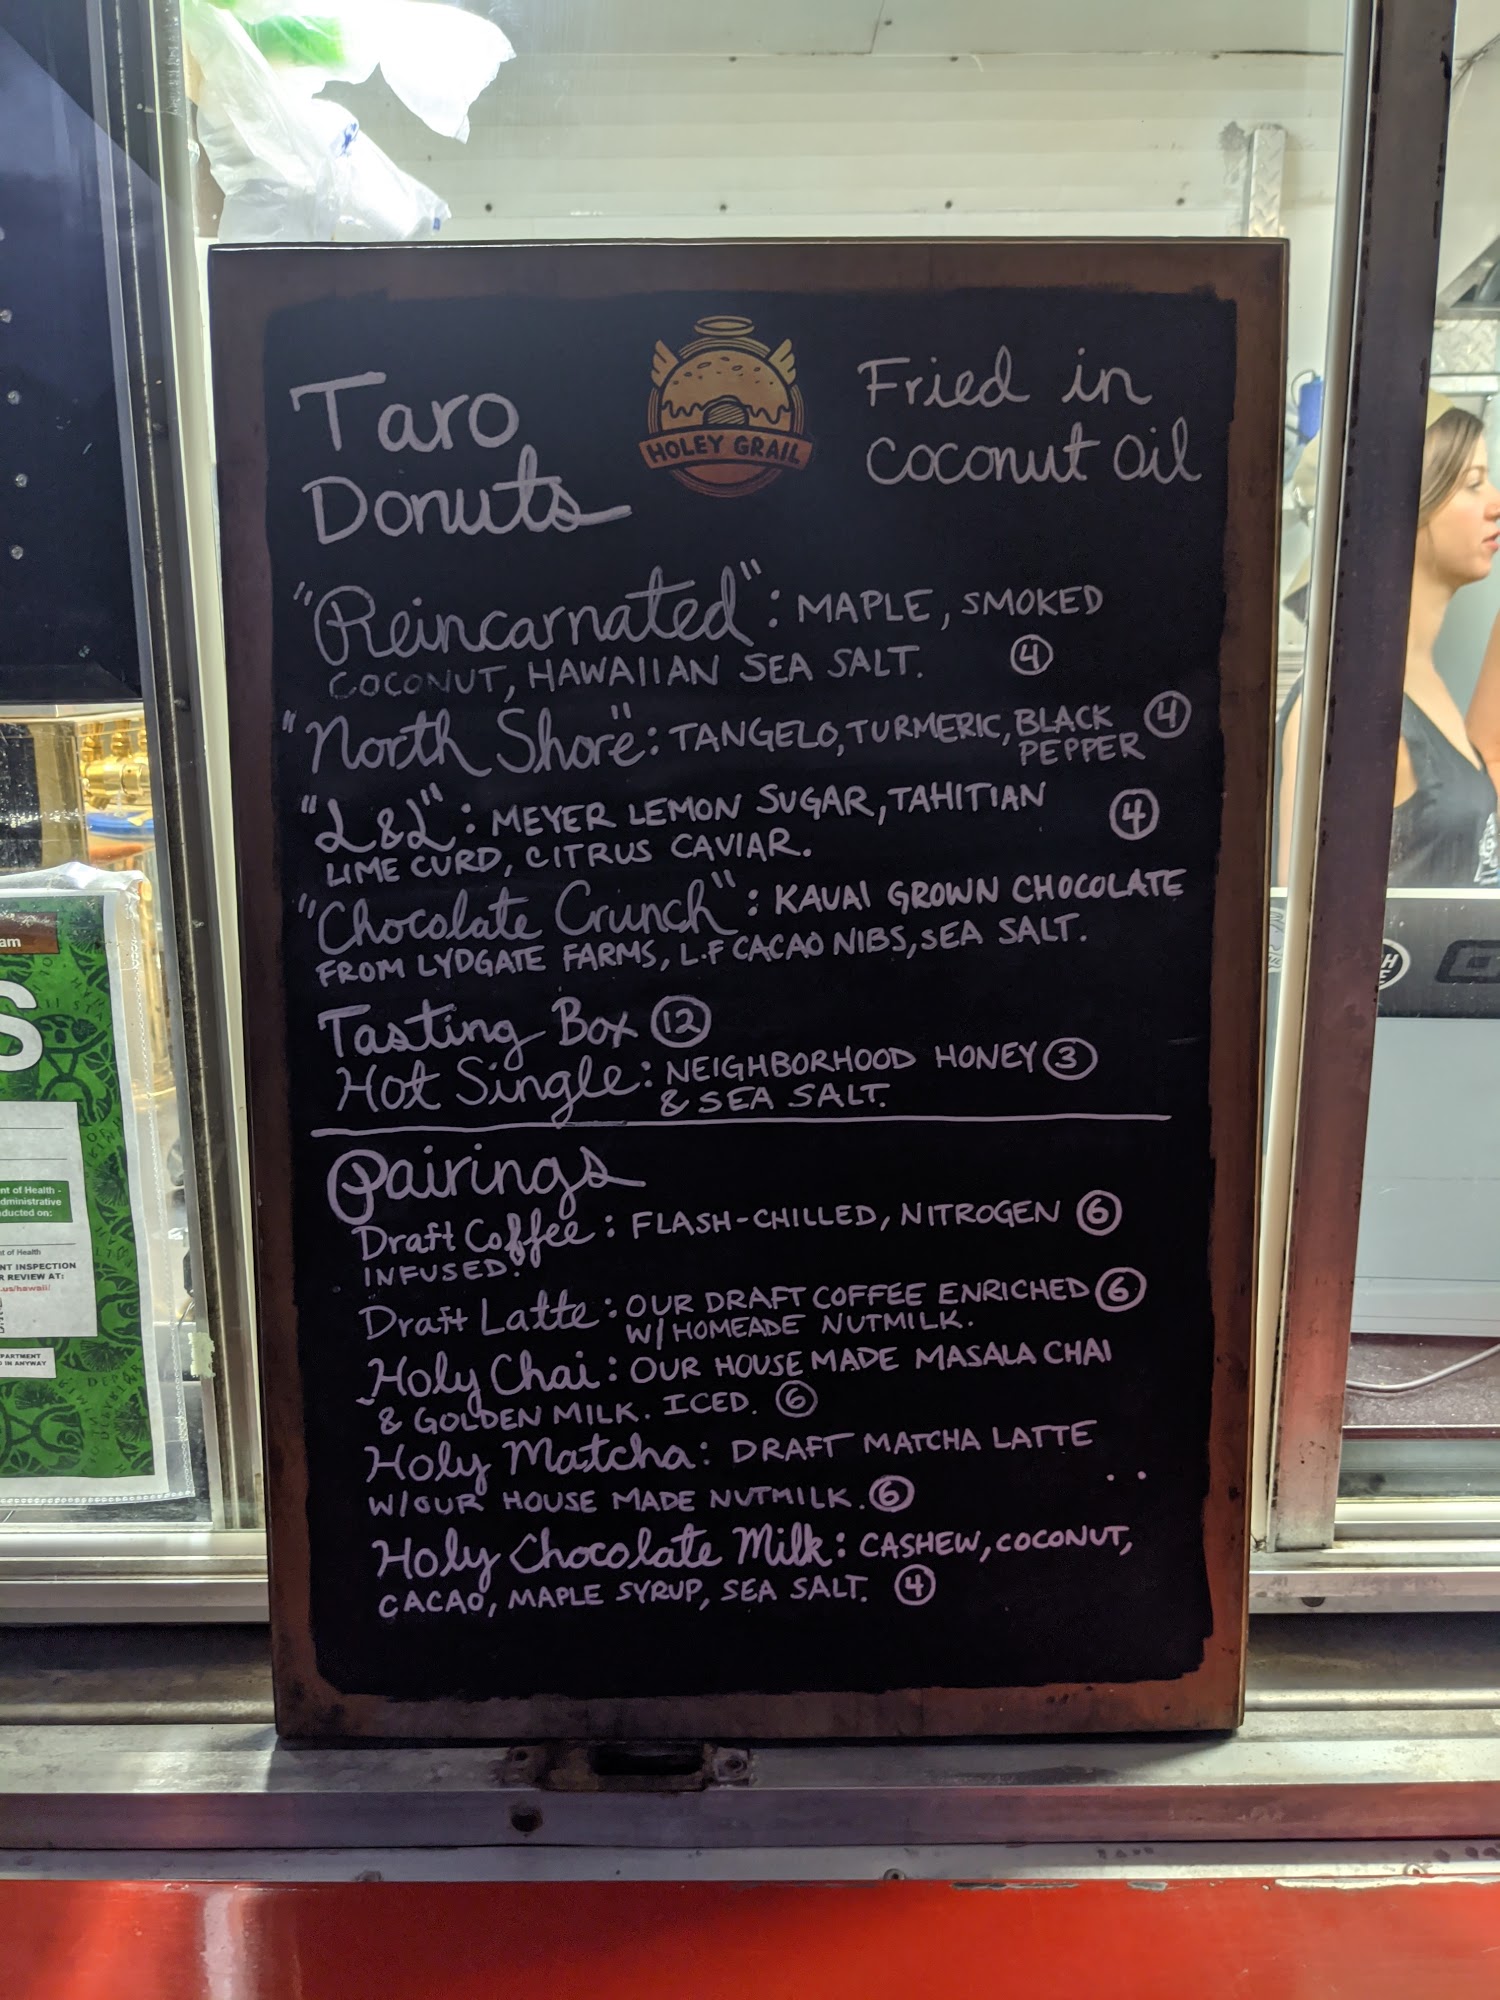 Taro
Donuts
HOLEY GRAIL
Fried in
Coconut Oil
"Reincarnated": MAPLE, SMOKED
COCONUT, HAWAIIAN SEA SALT. 4
"North Shore": TANGELO, TURMERIC, BLACK 4
PEPPER
"L&L": MEYER LEMON SUGAR, TAHITIAN 4
LIME CURD, CITRUS CAVIAR.
"Chocolate Crunch": KAUAI GROWN CHOCOLATE
FROM LYDGATE FARMS, L.F CACAO NIBS, SEA SALT.
Tasting Box 12
Hot Single: NEIGHBORHOOD HONEY 3
& SEA SALT.
Pairings
Draft Coffee: FLASH-CHILLED, NITROGEN 6
INFUSED.
Draft Latte: OUR DRAFT COFFEE ENRICHED 6
W/ HOMEADE NUTMILK.
Holy Chai: OUR HOUSE MADE MASALA CHAI
& GOLDEN MILK. ICED. 6
Holy Matcha: DRAFT MATCHA LATTE
W/OUR HOUSE MADE NUTMILK. 6
Holy Chocolate Milk: CASHEW, COCONUT,
CACAO, MAPLE SYRUP, SEA SALT. 4
am
S
nt of Health -
dministrative
ducted on:
t of Health
NT INSPECTION
R REVIEW AT:
.us/hawaii/
PARTMENT
D IN ANYWAY